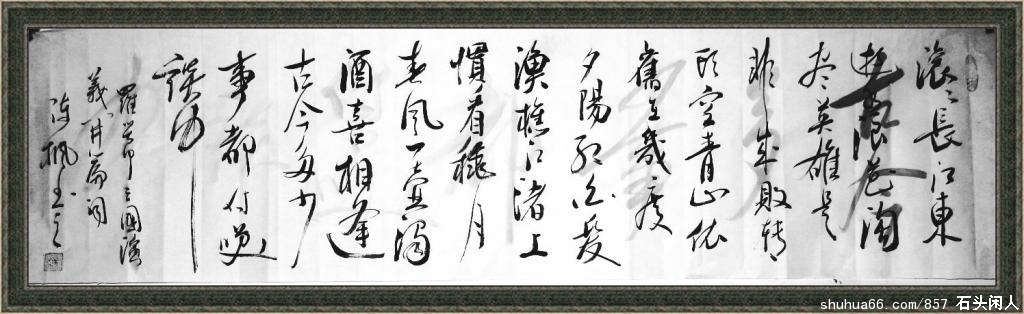 滚〻長江東
逝浪花淘
尽英雄是
非成敗转
頭空青山依
舊在幾度
夕陽红白发
漁樵江渚上
慣看穐月
春风一壶濁
酒喜相逢
古今多少
事都付笑
談中
羅贯中三國演
義开篇词
陈枫书之
shuhua66.com/857 石头闲人